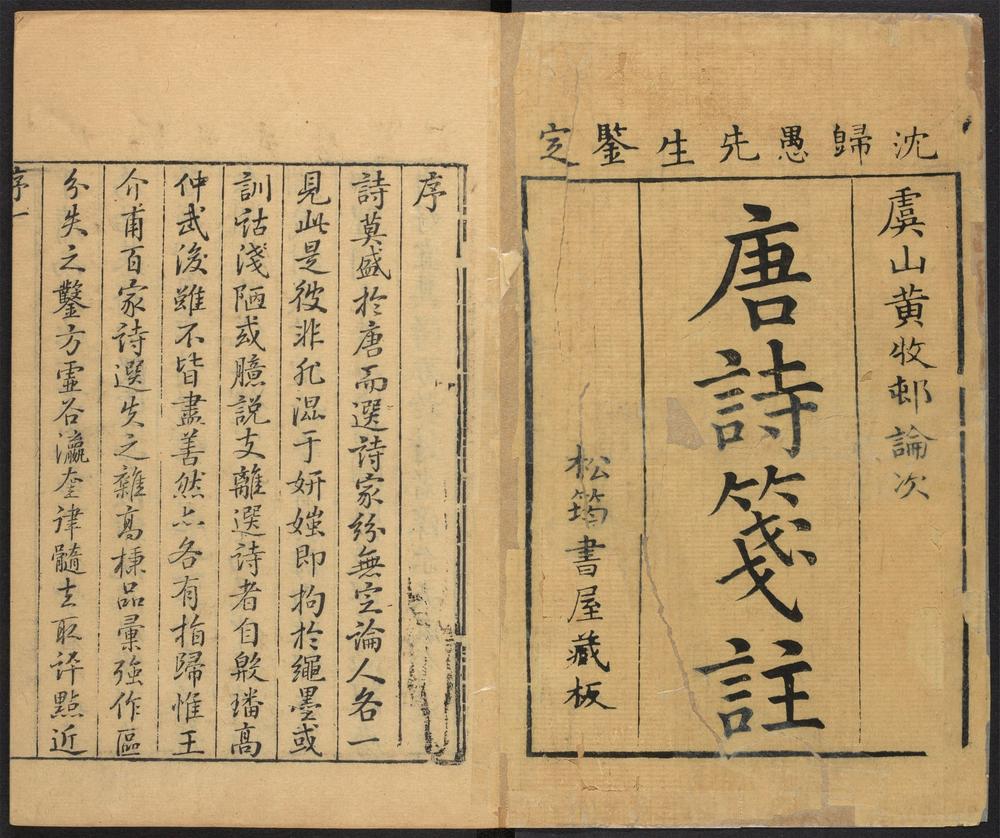 沈歸愚先生鑒定
虞山黃牧邨論次
唐詩箋註
松筠書屋藏板
序
詩莫盛於唐而選詩家紛無定論人各一
見此是彼非非混于妍媸即拘於繩墨或
訓詁淺陋或臆說支離選詩者自殷璠高
仲武後雖不皆盡善然亦各有指歸惟王
介甫百家詩選失之雜高棅品彙強作區
分失之鑿方虛谷瀛奎律髓去取評點近
序一